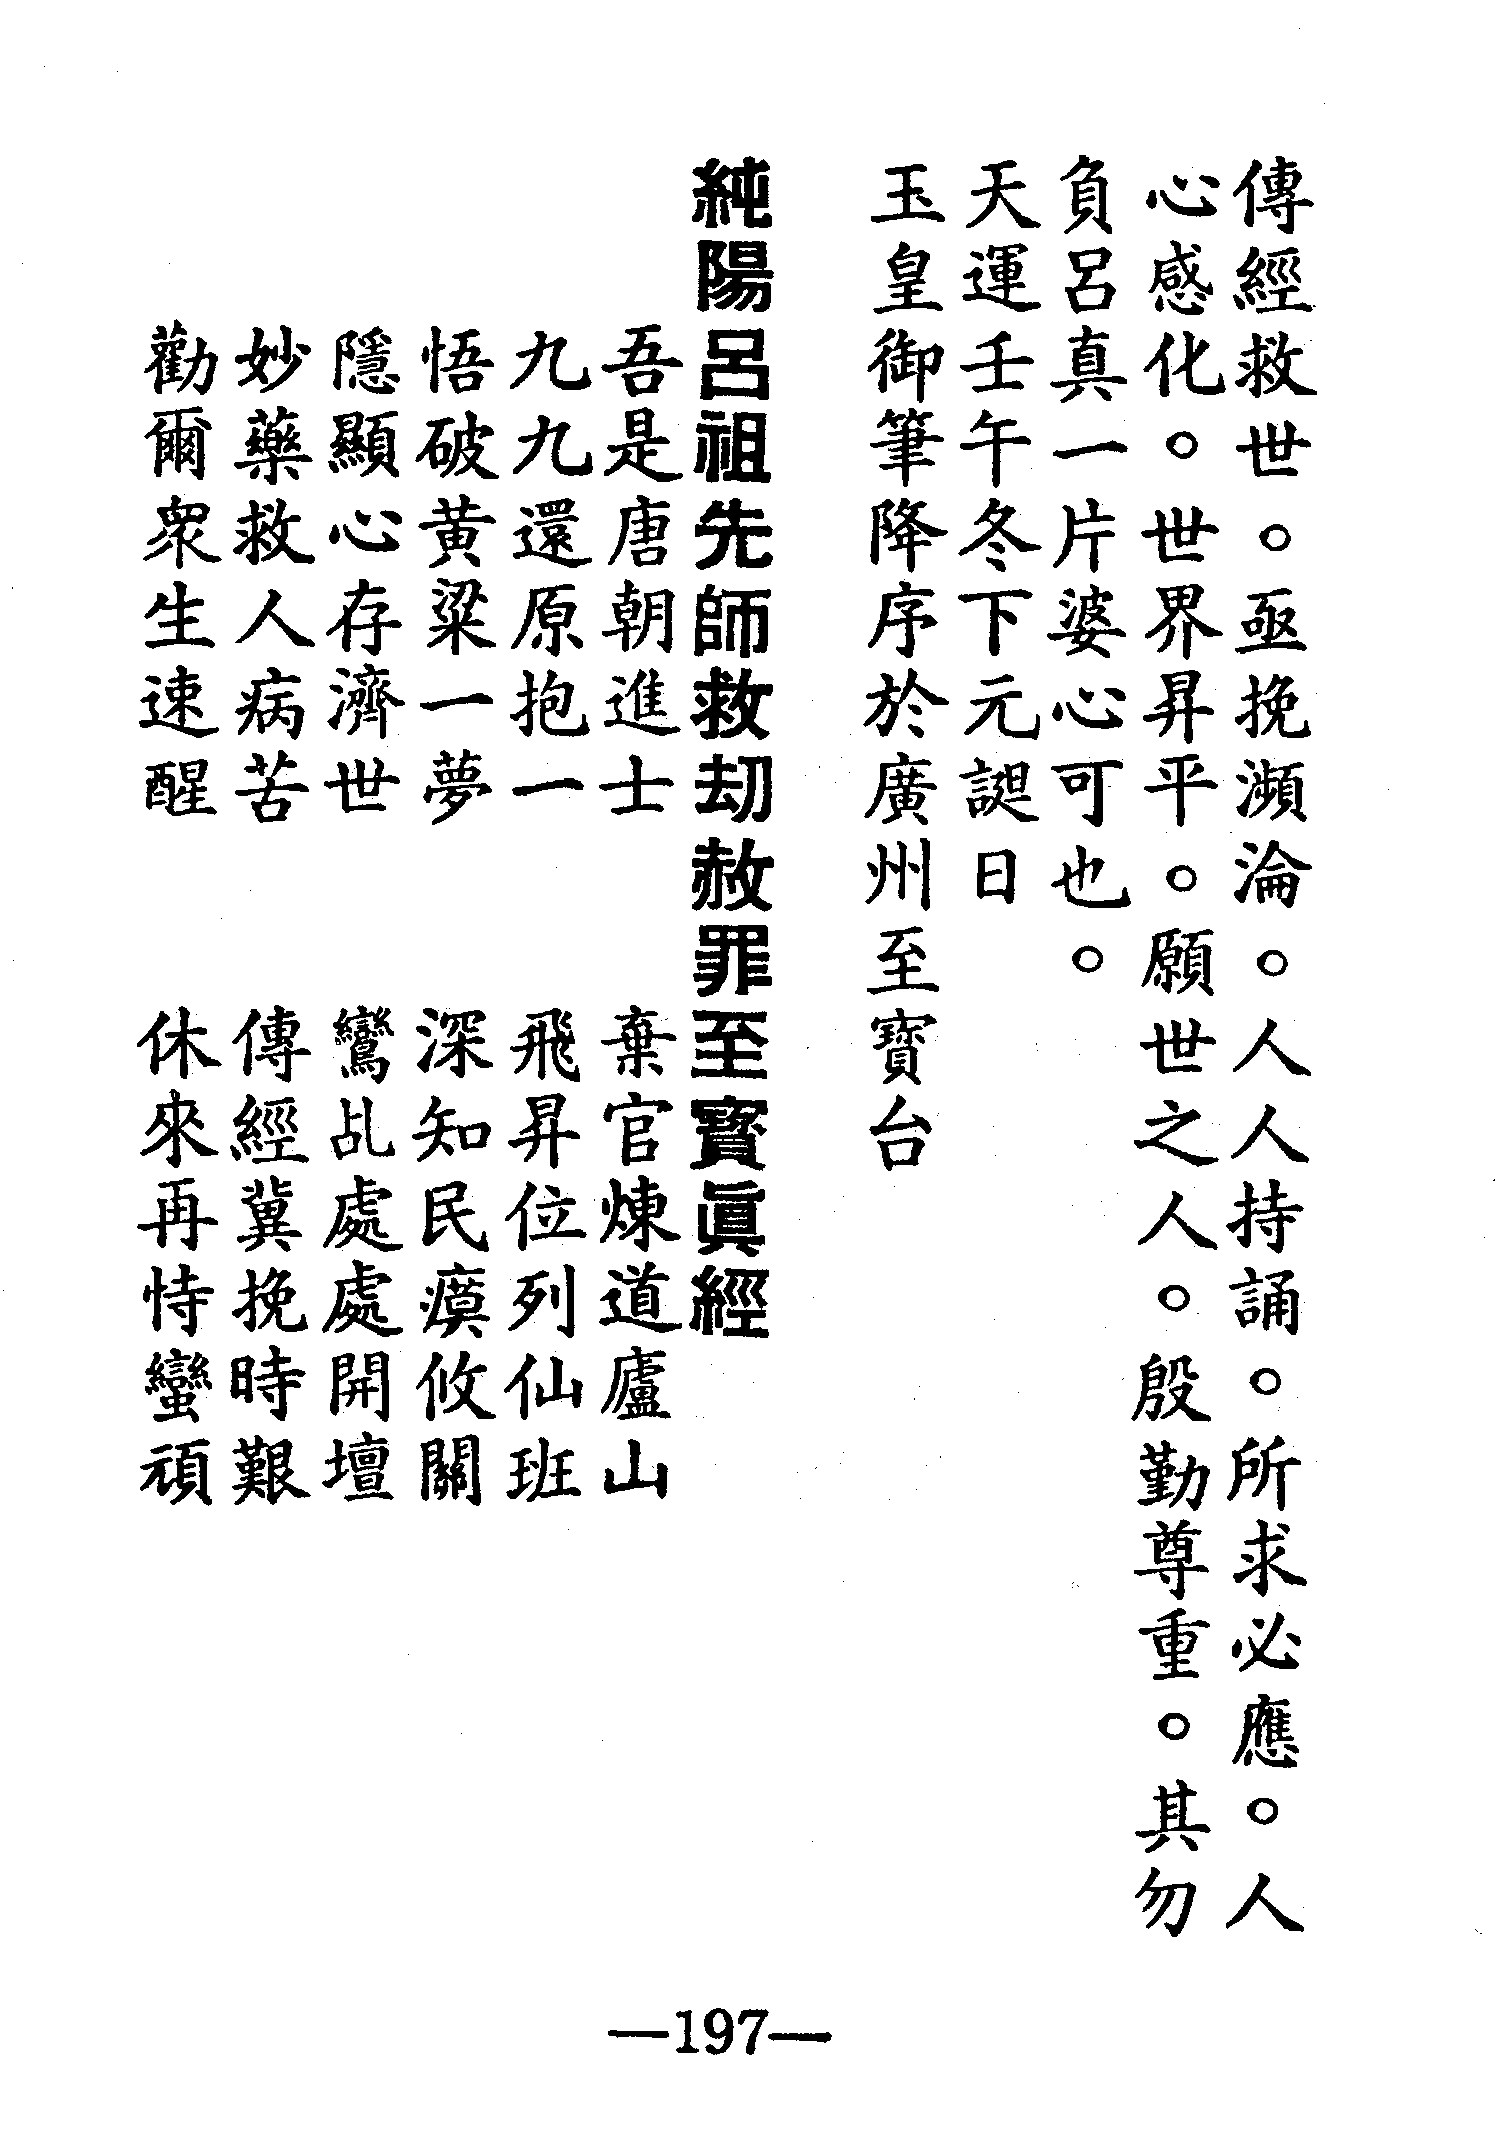 傳經救世。亟挽瀕淪。人人持誦。所求必應。人
心感化。世界昇平。願世之人。殷勤尊重。其勿
負呂真一片婆心可也。
天運壬午冬下元誕日
玉皇御筆降序於廣州至寶台
純陽呂祖先師救刧赦罪至寶眞經
吾是唐朝進士　棄官煉道廬山
九九還原抱一　飛昇位列仙班
悟破黃粱一夢　深知民瘼攸關
隱顯心存濟世　鸞乩處處開壇
妙藥救人病苦　傳經冀挽時艱
勸爾眾生速醒　休來再恃蠻頑
—197—